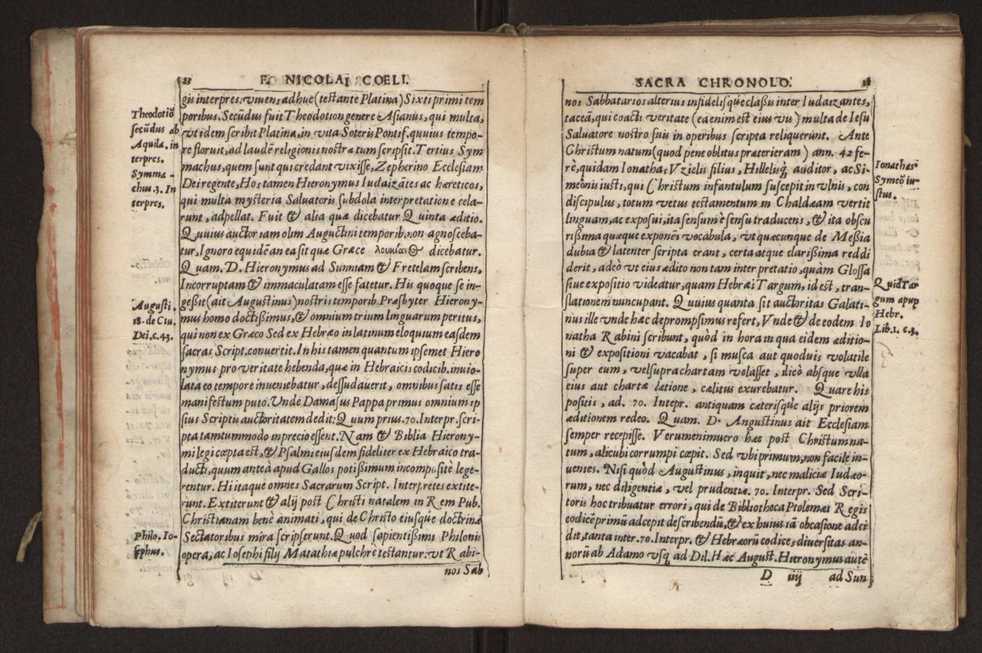 F. NICOLAI COELI.
gii interpres. viuens adhuc (testante Platina) Sixti primi tem
poribus. Secũdus fuit Theodotion genere Asianus, qui multa,
vt idem scribit Platina, in vita Soteris Pontif. quuius tempo-
re floruit, ad laudẽ religionis nostræ tum scripsit. Tertius Sym
machus, quem sunt qui credant vixisse, Zepherino Ecclesiam
Dei regente, Hos tamen Hieronymus Iudaizãtes ac hæreticos,
qui multa mysteria Saluatoris subdola interpretatione cela-
runt, adpellat. Fuit & alia quæ dicebatur Quinta æditio.
Quuius auctor iam olim Augustini temporib. non agnosceba-
tur, Ignoro equidẽ an ea sit quæ Græce dicebatur.
Quam. D. Hieronymus ad Sunniam & Fretelam scribens,
Incorruptam & immaculatam esse fatetur. His quoque se in-
gessit (ait Augustinus) nostris temporib. Præsbyter Hierony-
mus homo doctissimus, & omnium trium linguarum peritus,
qui non ex Græco Sed ex Hebræo in latinum eloquium easdem
sacras Script. conuertit. In his tamen quantum ipsemet Hiero
nymus pro veritate hebenda, quæ in Hebraicis codicib. inuio-
lata eo tempore inueniebatur, dessudauerit, omnibus satis esse
manifestum puto. Vnde Damasus Pappa primus omnium ip
sius Scriptis auctoritatem dedit: Quum prius. 70. Interpr. scri-
pta tamtummodo in precio essent. Nam & Biblia Hierony-
mi legi cœpta est, & Psalmi eiusdem fideliter ex Hebraico tra-
ducti, quum anteà apud Gallos potissimum incomposité lege-
rentur. Hi itaque omnes Sacrarum Script. Interpretes extite-
runt. Extiterunt & alij post Christi natalem in Rem Pub.
Christianam bené animati, qui de Christo eiusque doctrina
Sectatoribus mira scripserunt. Quod sapientissimi Philonis
opera, ac Iosephi filij Matathiæ pulchrè testantur. vt Rabi-
nos Sab
Theodotiõ
secũdus ab
Aquila, in
terpres.
Symma -
chus 3. In
terpres.
Augusti.
18. de Ciu.
Dei, c. 43.
Philo, Io-
sephus.
SACRA CHRONOLO.
nos Sabbatarios alterius infidelisq́ue classis inter Iudaizantes,
taceã, qui coacti veritate (ea enim est eius vis) multa de Iesu
Saluatore nostro suis in operibus scripta reliquerint. Ante
Christum natum (quod pene oblitus præterieram) ann. 42 fe-
rè, quidam Ionathas Vzielis filius, Hillelisq́; auditor, ac Si-
meonis iusti, qui Christum infantulum suscepit in vlnis, con
discipulus, totum vetus testamentum in Chaldæam vertit
linguam, ac exposui, ita sensum è sensu traducens, & ita obscu
rissima quæque exponẽs vocabula, vt quæcunque de Messia
dubia & latenter scripta erant, certa atque clarissima reddi
derit, adeò vt eius æditio non tam interpretatio, quàm Glossa
siue expositio videatur, quam Hebræi Targum, id est, tran-
slationem nuncupant. Quuius quanta sit auctoritas Galati-
nus ille vnde hæc depromsimus refert, Vnde & de eodem Io
natha Rabini scribunt, quòd in hora in qua eidem æditio-
ni & expositioni vacabat, si musca aut quoduis volatile
super eum, vel supra chartam volasset, dicò absque vlla
eius aut chartæ lætione, cælitus exurebatur. Quare his
positis, ad. 70. Intepr. antiquam cæterisq́ue alijs priorem
æditionem redeo. Quam. D. Angustinus ait Ecclesiam
semper recepisse. Verumenimuero hæc post Christum na-
tum, alicubi corrumpi cœpit. Sed vbi primum, non facile in-
uenies. Nisi quòd Augustinus, inquit, nec maliciæ Iudæo-
rum, nec diligentiæ, vel prudentiæ. 70. Interpr. Sed Scri-
toris hoc tribuatur errori, qui de Bibliotheca Ptolemæi Regis
codicẽ primũ adcepit describendũ, & ex huius iã obcasione adci
dit, tanta inter. 70. Interpr. & Hebræorũ codice, diuersitas an-
norũ ab Adamo vsq́; ad Dil. Hæc August. Hieronymus autẽ
D iiij ad Sun
Ionathas
Symeõ iu-
stus.
Quid Tar
gum apup
Hebr.
Lib. 1. c. 3.